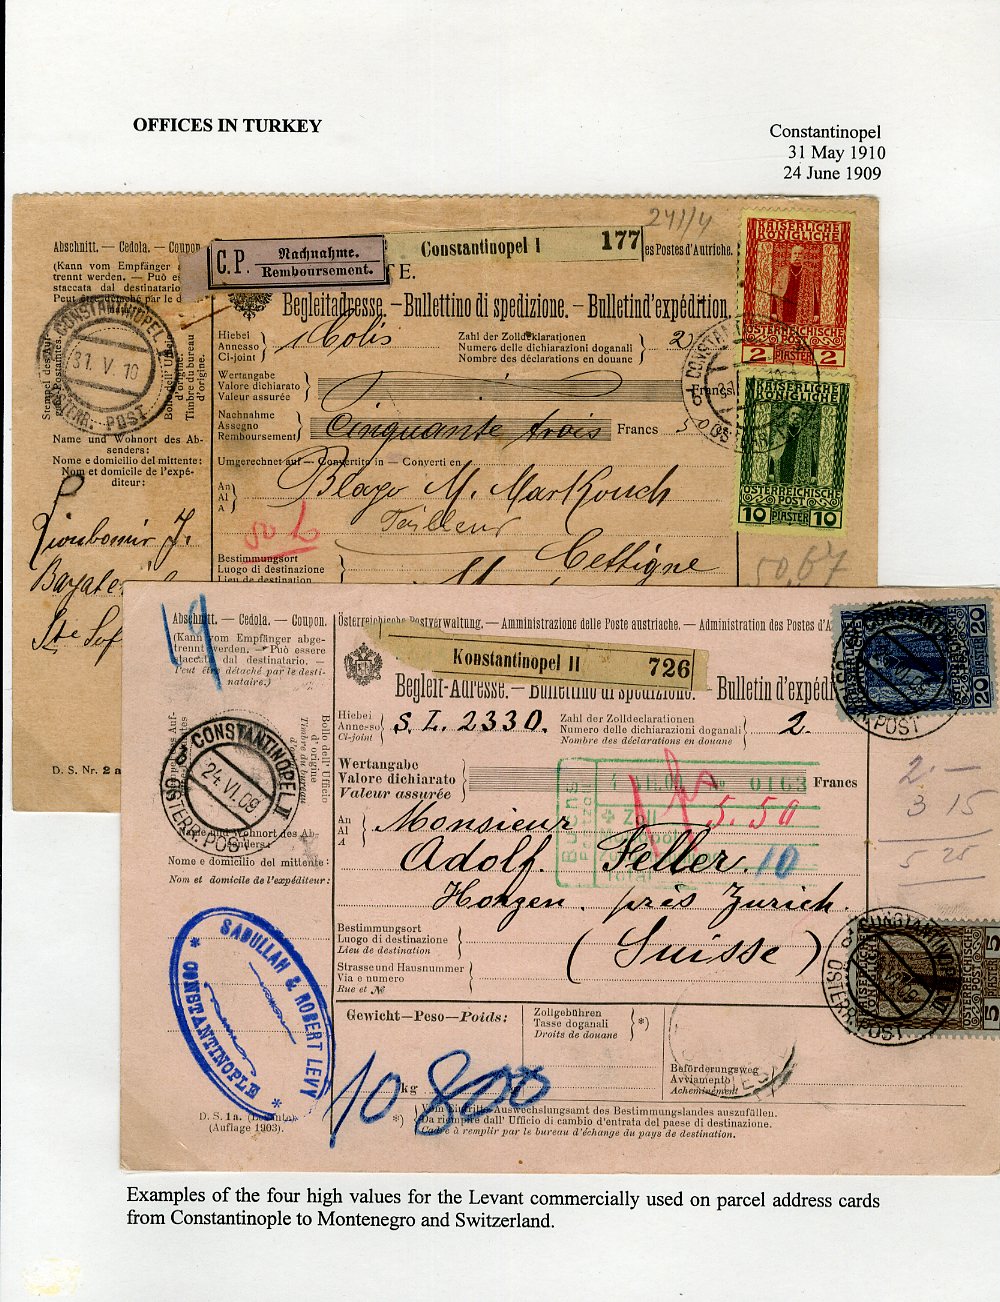 OFFICES IN TURKEY
Constantinopel
31 May 1910
24 June 1909
241/4
Abschnitt. — Cedola. — Coupon
(Kann vom Empfänger
trennt werden. — Può es
staccata dal destinatario
Peut être détaché par le d
C.P. Nachnahme.
Remboursement.
Constantinopel I 177
es Postes d'Autriche.
Begleitadresse. — Bullettino di spedizione. — Bulletin d'expédition.
Hiebei
Annesso
Ci-joint
Colis
Zahl der Zolldeklarationen
Numero delle dichiarazioni doganali
Nombre des déclarations en douane
2
Wertangabe
Valore dichiarato
Valeur assurée
Francs
Nachnahme
Assegno
Remboursement
Cinquante trois
Francs
Umgerechnet auf — Convertito in — Converti en
An
Al
A
Blago M. Markouch
Tailleur
Cettigne
Bestimmungsort
Luogo di destinazione
Lieu de destination
50,67
CONSTANTINOPEL
31. V. 10
ÖSTERR. POST
Stempel des Auf-
Bollo dell' Uff.
d'origine.
Timbre du bureau
d'origine.
Name und Wohnort des Ab-
senders:
Nome e domicilio del mittente:
Nom et domicile de l'expé-
diteur:
D. S. Nr. 2
KAISERLICHE
KÖNIGLICHE
ÖSTERREICHISCHE
POST
2 PIASTER 2
KAISERLICHE
KÖNIGLICHE
ÖSTERREICHISCHE
POST
10 PIASTER 10
19
Abschnitt. — Cedola. — Coupon.
(Kann vom Empfänger abge-
trennt werden. — Può essere
staccata dal destinatario. —
Peut être détaché par le desti-
nataire.)
Österreichische Postverwaltung. — Amministrazione delle Poste austriache. — Administration des Postes d'A
Konstantinopel II 726
Begleit-Adresse. — Bullettino di spedizione. — Bulletin d'expédi
Hiebei
Annesso
Ci-joint
S. L. 2330.
Zahl der Zolldeklarationen
Numero delle dichiarazioni doganali
Nombre des déclarations en douane
2.
Wertangabe
Valore dichiarato
Valeur assurée
Francs
0163
Zoll
Total
5.50
10
An
Al
A
Monsieur
Adolf. Feller.
Horgen. près Zurich.
(Suisse)
Bestimmungsort
Luogo di destinazione
Lieu de destination
Strasse und Hausnummer
Via e numero
Rue et №
Gewicht—Peso—Poids:
kg
10 800
Zollgebühren
Tasse doganali
Droits de douane
*)
Beförderungsweg
Avviamento
Acheminement
*) Vom Eintritts-Auswechslungsamt des Bestimmungslandes auszufüllen.
Da riempire dall' Ufficio di cambio d'entrata del paese di destinazione.
Cadre à remplir par le bureau d'échange du pays de destination.
CONSTANTINOPEL II
24. VI. 09
ÖSTERR. POST
Bollo dell' Ufficio
d'origine
Timbre du bureau
d'origine
Name und Wohnort des Ab-
senders:
Nome e domicilio del mittente:
Nom et domicile de l'expéditeur:
SADULLAH & ROBERT LEVY
* CONSTANTINOPLE *
D. S. 1 a.
(Auflage 1903).
20 PIASTER 20
2 —
3 15
5 25
KAISERLICHE
KÖNIGLICHE
ÖSTERREICHISCHE
5 5
CONSTANTINOPEL II
ÖSTERR. POST
Examples of the four high values for the Levant commercially used on parcel address cards
from Constantinople to Montenegro and Switzerland.